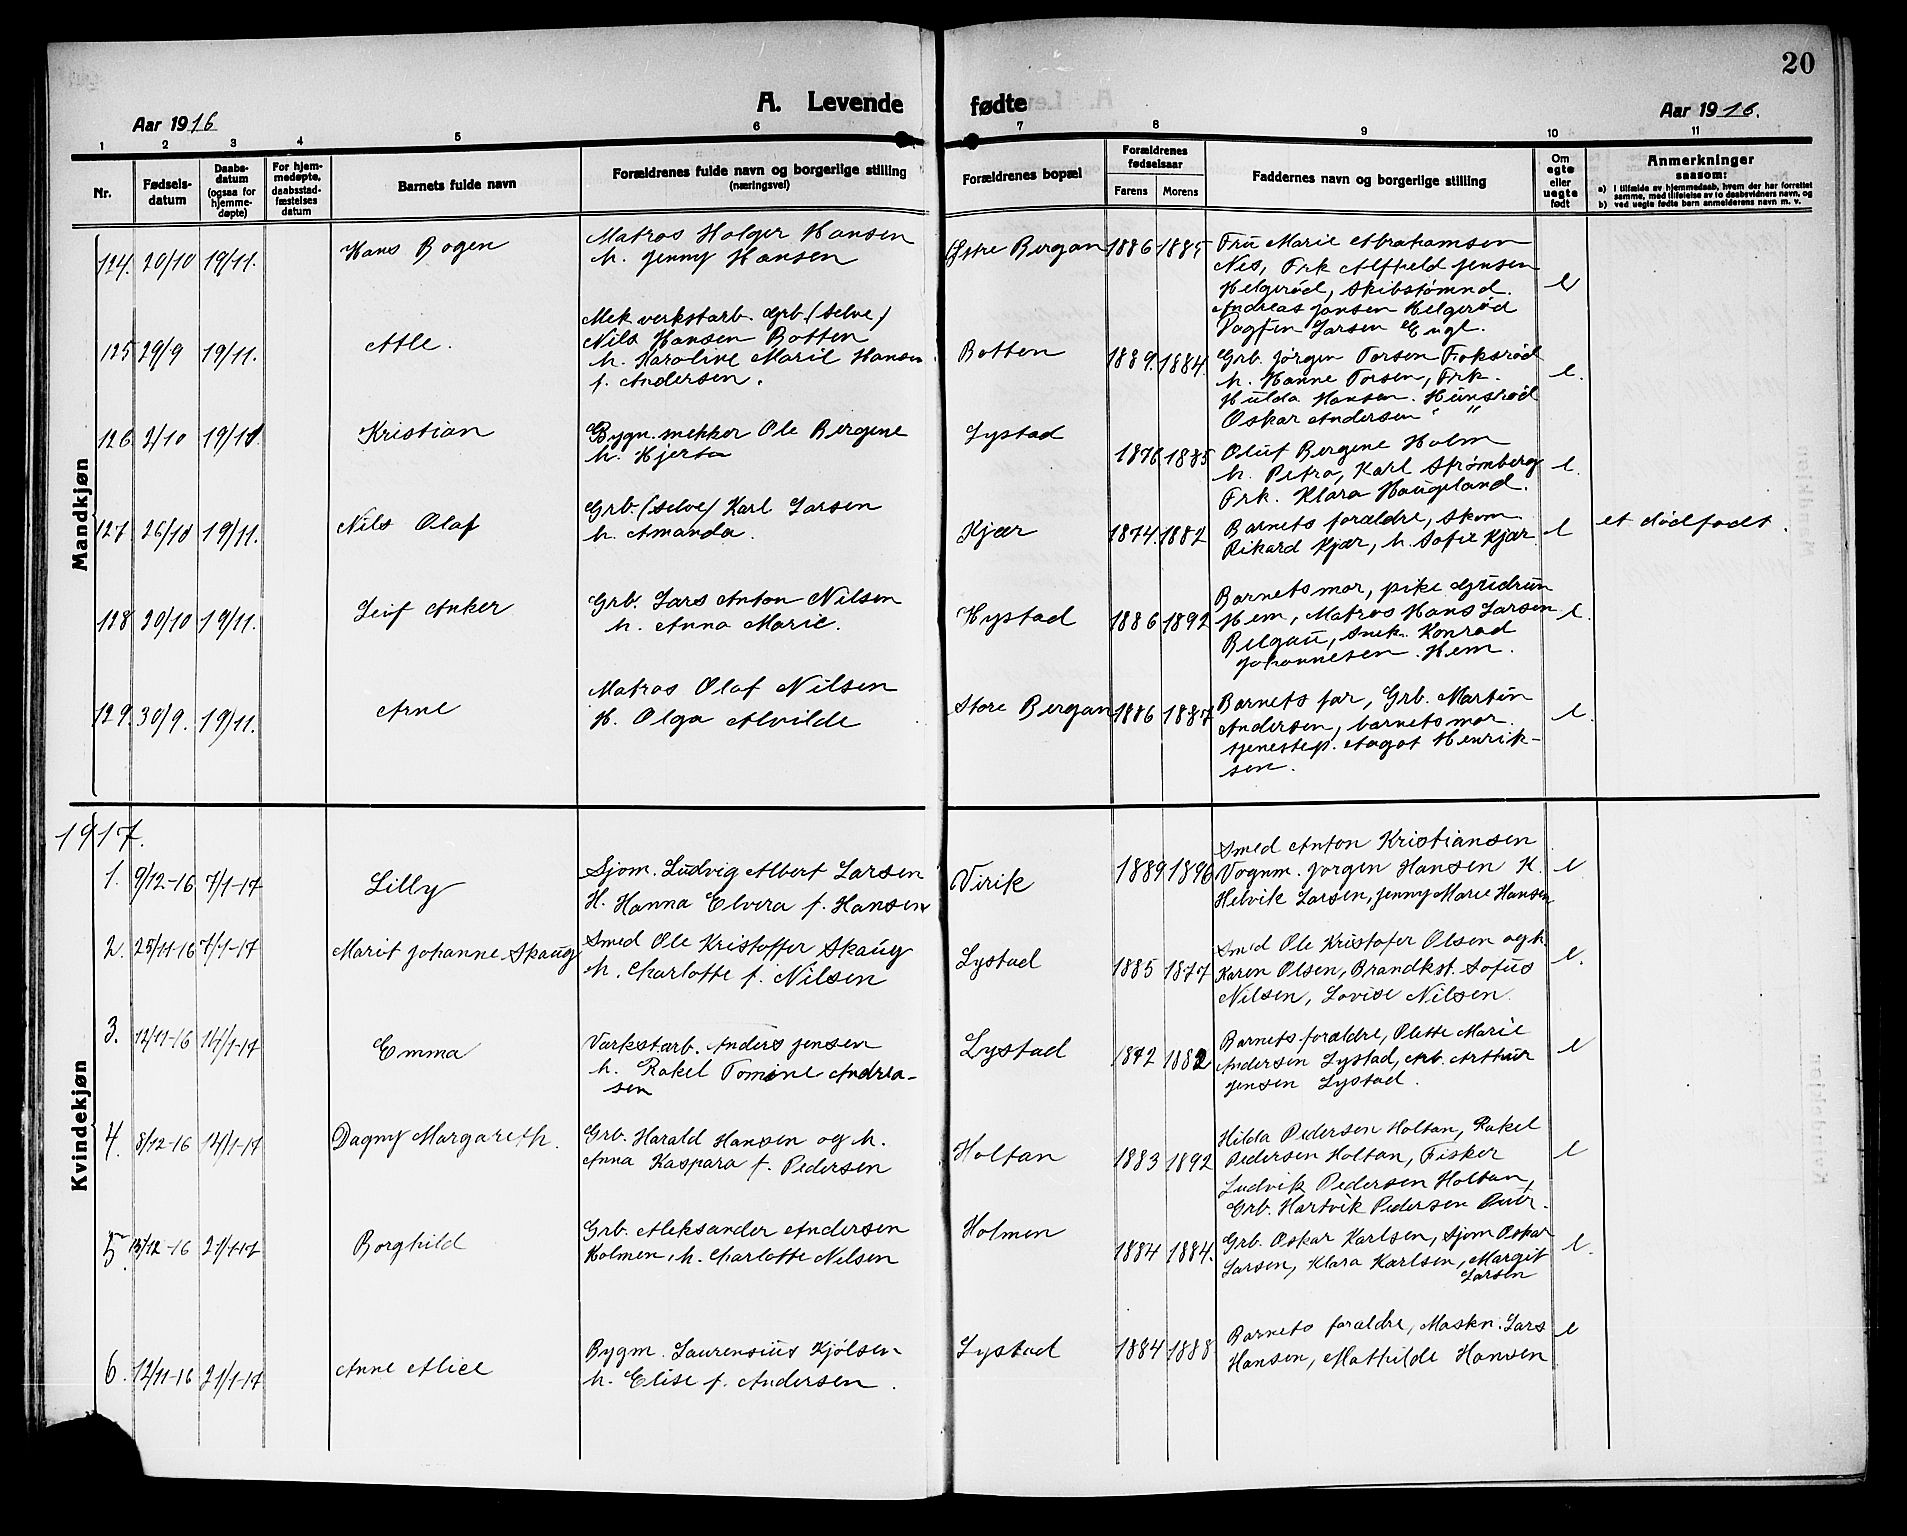 20
A. Levende fødte
Aar 1916
Aar 1916.
1 2 3 4 5 6 7 8 9 10 11
Nr.
Fødsels-
datum
Daabs-
datum
(ogsaa for
hjemme-
døpte)
For hjem-
medøpte,
daabsstad-
fæstelses
datum
Barnets fulde navn
Forældrenes fulde navn og borgerlige stilling
(næringsvei)
Forældrenes bopæl
Forældrenes
fødselsaar
Farens Morens
Faddernes navn og borgerlige stilling
Om
egte
eller
uegte
født
Anmerkninger
saasom:
a) I tilfælde av hjemmedaab, hvem der har forrettet
samme, med tilføielse av to daabsvidners navn, og
b) ved uegte fødte børn anmelderens navn m. v.
Mandkjøn
124. 20/10 19/11. Hans Bogen
Matros Holger Hansen
h. Jenny Hansen
Østre Bergan 1886 1885
Fru Marie Abrahamsen
Nes, Frk Alfhild Jensen
Helgerød, Skibstømnd.
Andreas Jansen Helgerød
Dagfin Larsen Engl.
e
125 29/9 19/11. Atle.
Mek verkstarb. Grb. (selve)
Nils Hansen Botten
h. Karoline Marie Hansen
f. Andersen.
Botten 1889. 1884.
Grb. Jörgen Torsen Fokserød
h. Hanne Torsen, Frk.
Hulda Hansen. Hunsrød
Oskar Andersen " "
e.
126 2/10 19/11. Kristian
Bygn. snekker Ole Bergene
h. Hjerta
Lystad 1876 1885
Oluf Bergene Holm
h. Petra, Karl Strømberg
Frk. Klara Haugeland.
e.
127. 26/10 19/11. Nils Olaf
Grb. (selve) Karl Larsen
h. Amanda.
Kjær 1874. 1882
Barnets forældre, Skom
Rikard Kjær, h. Sofie Kjær
e et dødfødt.
128 20/10 19/11. Leif Anker
Grb. Lars Anton Nilsen
h. Anna Marie.
Hystad 1886 1892
Barnets mor, pike Gudrun
Hem, Matros Hans Larsen
Belgau, Snek. Konrad
Johannesen. Hem.
e.
129. 30/9. 19/11. Arne
Matros Olaf Nilsen
H. Olga Alvilde
Store Bergan 1886 1887
Barnets far, Grb. Martin
Andersen, barnets mor.
tjenestep. Aagot Henrik-
sen.
e.
1917.
Kvindekjøn
1. 9/12-16 7/1-17 Lilly
Sjøm. Ludvig Albert Larsen
H. Hanna Elvera f. Hansen
Virik 1889 1896
Smed Anton Kristiansen
Vognm. Jørgen Hansen H.
Helvik Larsen, Jenny Marie Hansen
e.
2. 25/11-16 7/1-17 Marit Johanne Skaug
Smed Ole Kristoffer Skaug
h. Charlotte f. Nilsen
Lystad 1885 1877
Smed Ole Kristofer Olsen og h.
Karen Olsen, Brandkst. Sofus
Nilsen, Lovise Nilsen.
e.
3. 12/11-16 14/1-17 Emma
Varkstarb. Anders Jensen
h. Rakel Tomine Andrea-
sen
Lystad 1872 1882
Barnets forældre, Olette Marie
Andersen Lystad, Arb. Arthur
Jensen Lystad.
e
4. 8/12-16 14/1-17 Dagny Margareth.
Grb. Harald Hansen og h.
Anna Kaspara f. Pedersen
Holtan 1883 1892
Hilda Pedersen Holtan, Rakel
Pedersen Holtan, Fisker
Ludvik Pedersen Holtan,
Grb. Hartvik Pedersen
e
5. 13/12-16 21/1-17 Borghild
Grb. Aleksander Andersen
Holmen, h. Charlotte Nilsen
Holmen 1884 1884.
Grb. Oskar Karlsen, Sjøm Oskar
Larsen, Klara Karlsen, Margit
Larsen
e.
6. 12/11-16 21/1-17 Anne Alice
Bygm. Laurensius Kjølsen
h. Elise f. Andersen.
Lystad 1884 1888
Barnets forældre, Maskn. Lars
Hansen, Mathilde Hansen
e